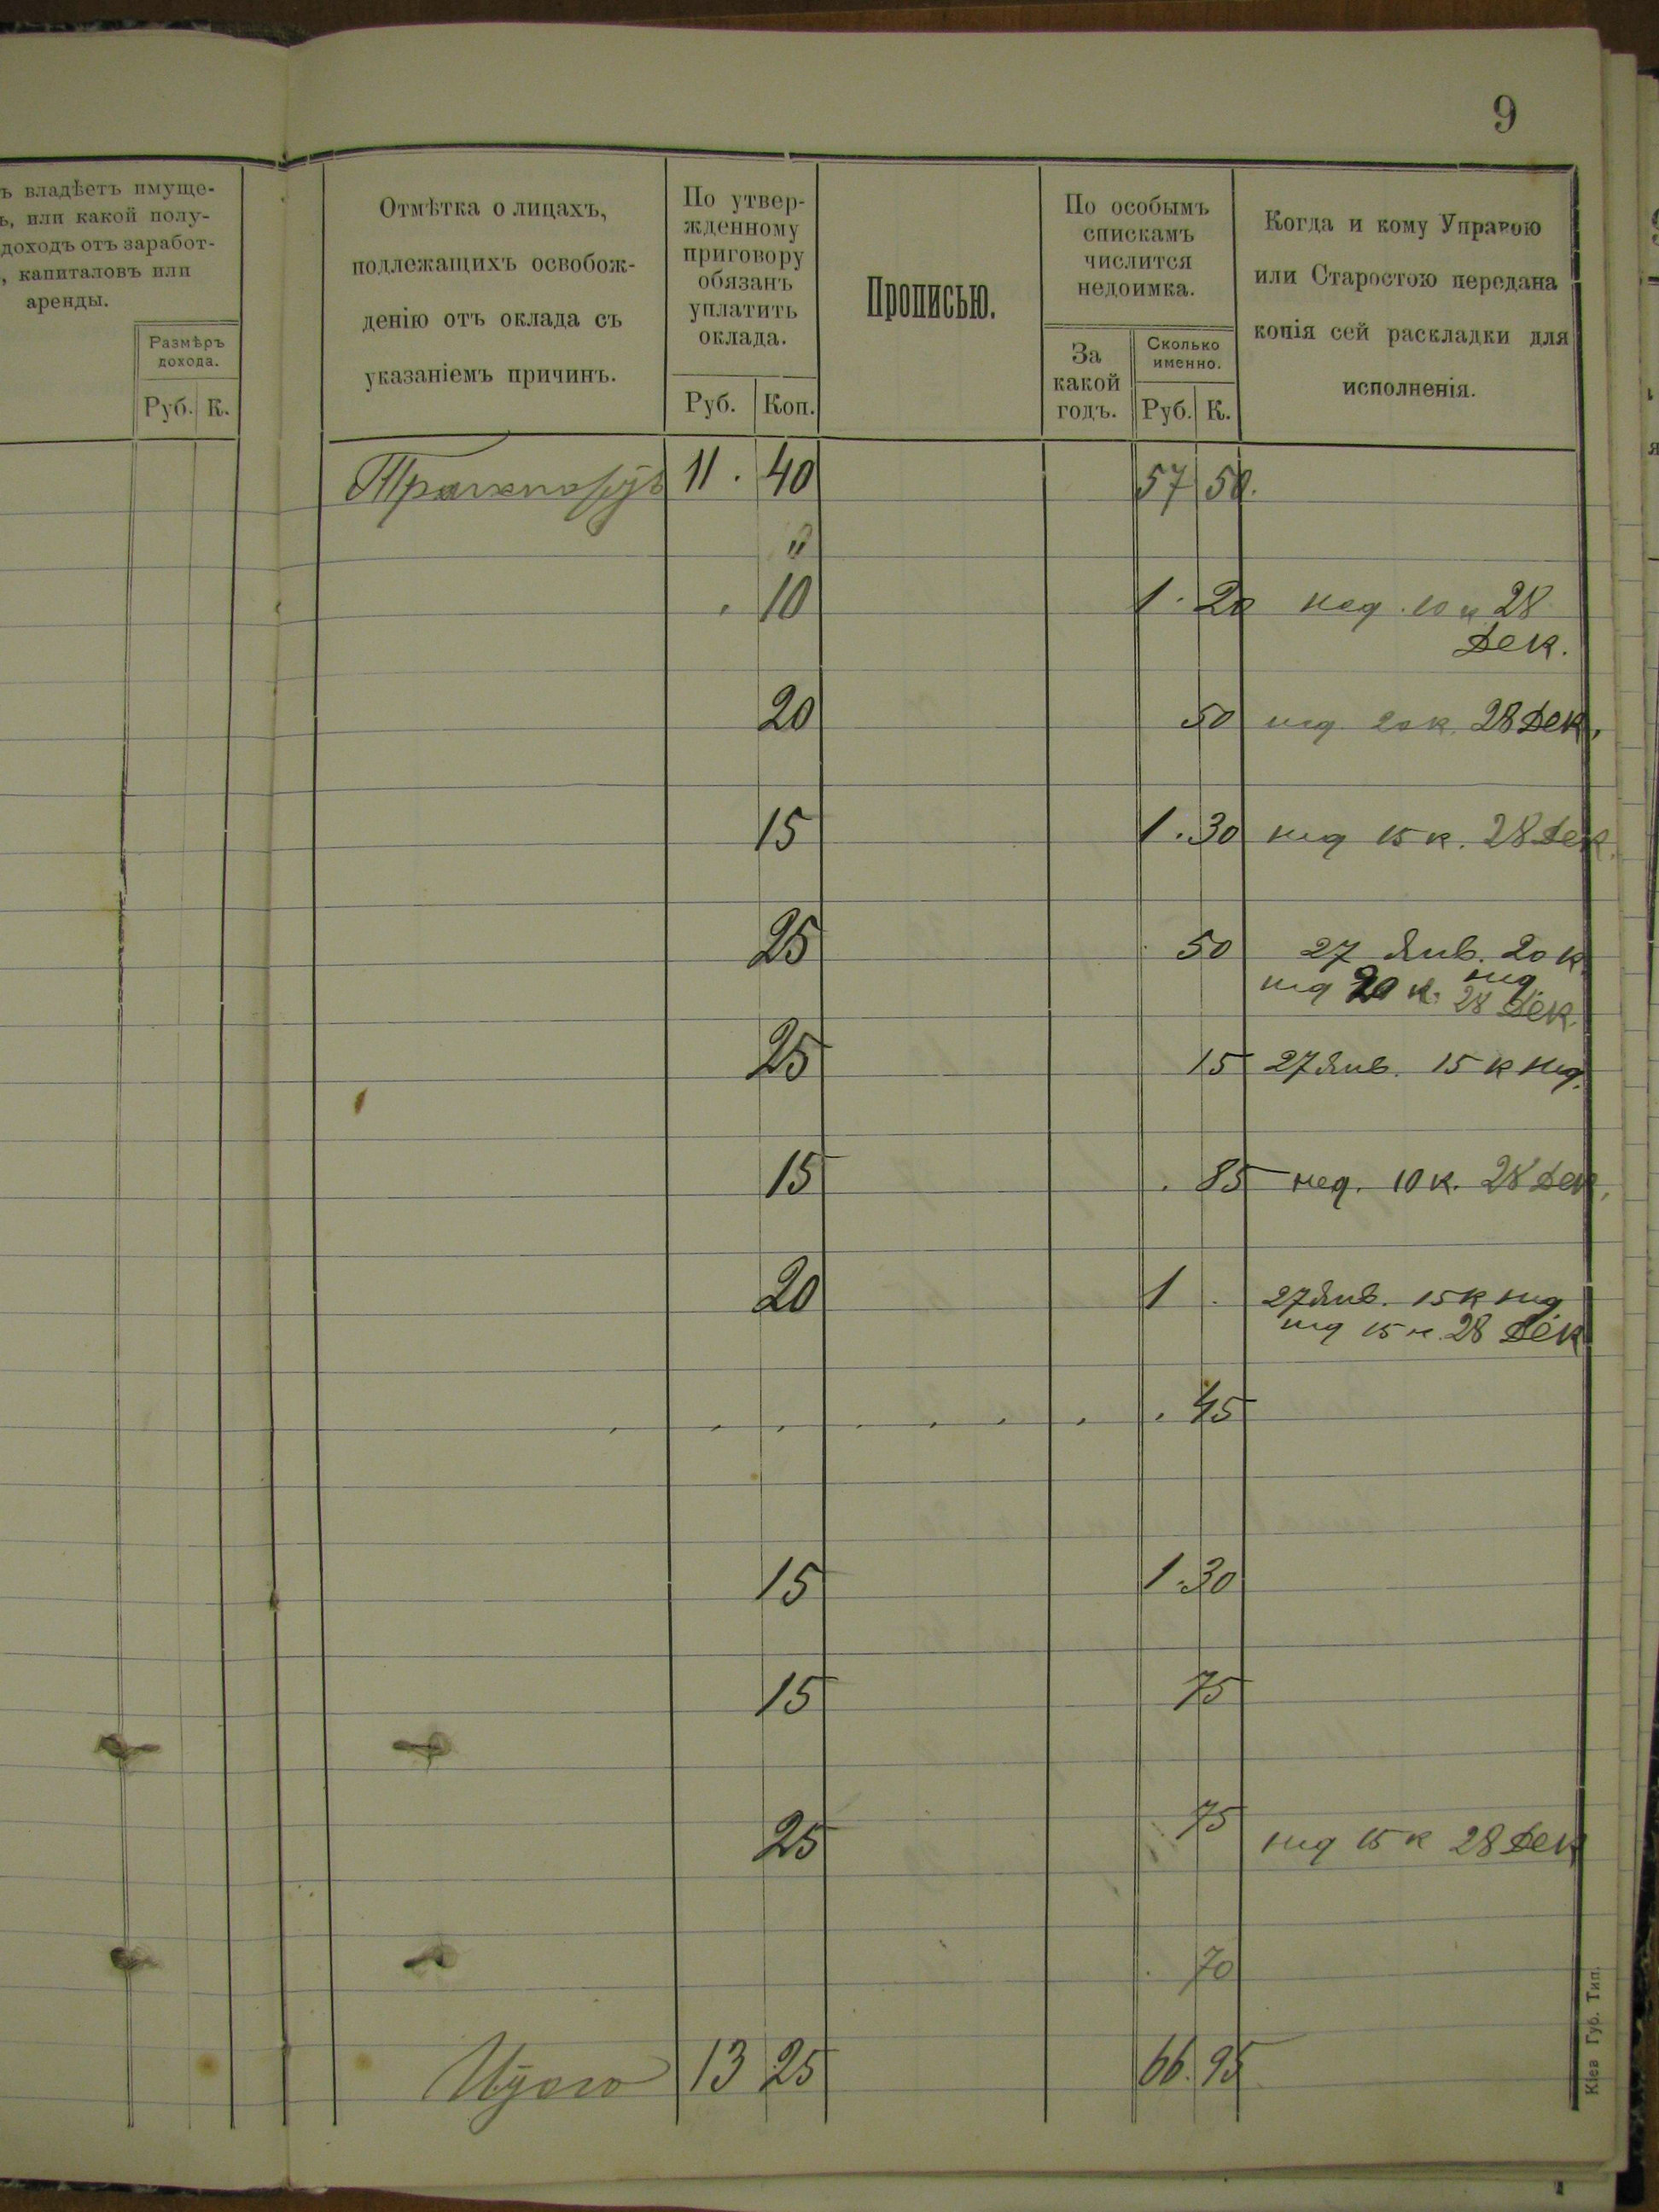 9
ъ владѣетъ имуще-
ь, или какой полу-
доходъ отъ заработ-
, капиталовъ или
аренды.
Размѣръ
дохода.
Руб. К.
Отмѣтка о лицахъ,
подлежащихъ освобож-
денію отъ оклада съ
указаніемъ причинъ.
По утвер-
жденному
приговору
обязанъ
уплатить
оклада.
Руб. Коп.
Прописью.
По особымъ
спискамъ
числится
недоимка.
За
какой
годъ.
Сколько
именно.
Руб. К.
Когда и кому Управою
или Старостою передана
копія сей раскладки для
исполненія.
Транспортъ 11. 40 57 50.
"
. 10 1. 20 нед. 10 к 28
Дек.
20 50 нед 20 к. 28 Дек.
15 1. 30 нед 15 к. 28 Дек.
25 . 50 27 Янв. 20 к
нед
нед 20 к. 28 Дек.
25 15 27 Янв. 15 к нед.
15 . 85 нед. 10 к. 28 Дек.
20 1 . 27 Янв. 15 к нед
нед 15 к. 28 Дек
. . . . . . . . 45
15 1. 30
15 75
25 75 нед 15 к 28 Дек
. 70
Итого 13 25 66. 95
Кіев Губ. Тип.